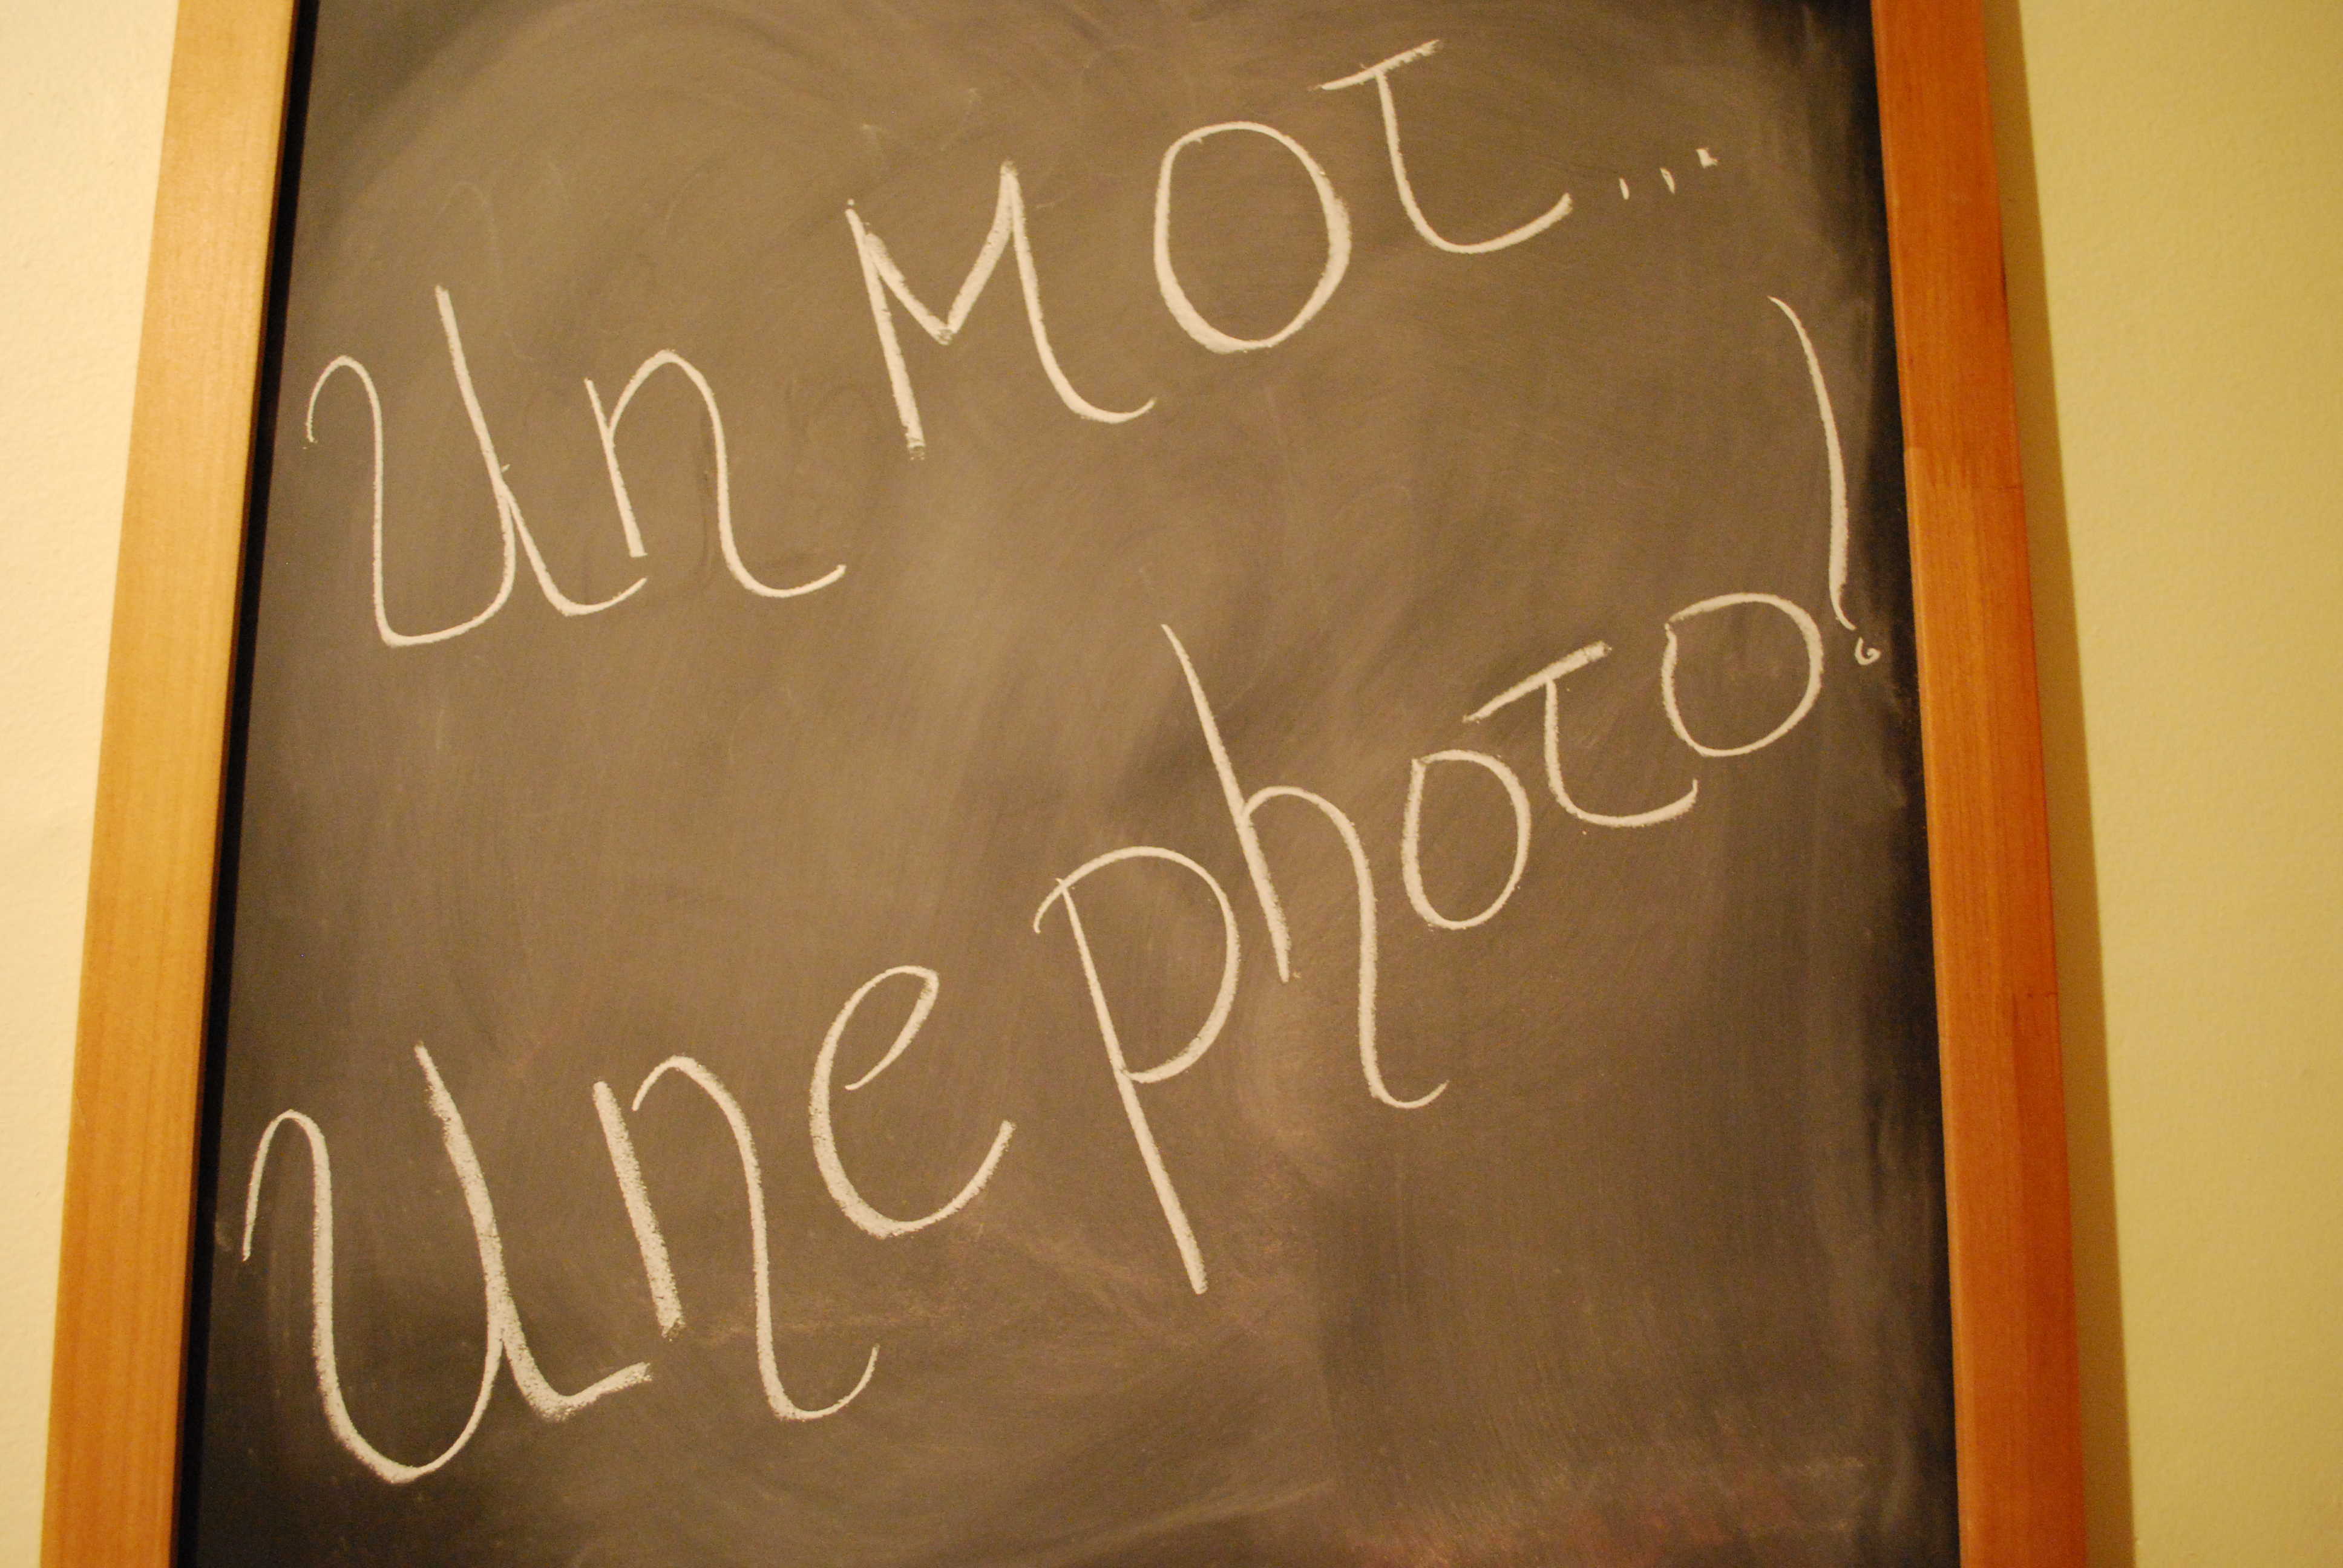 Un MOT...
Une photo!